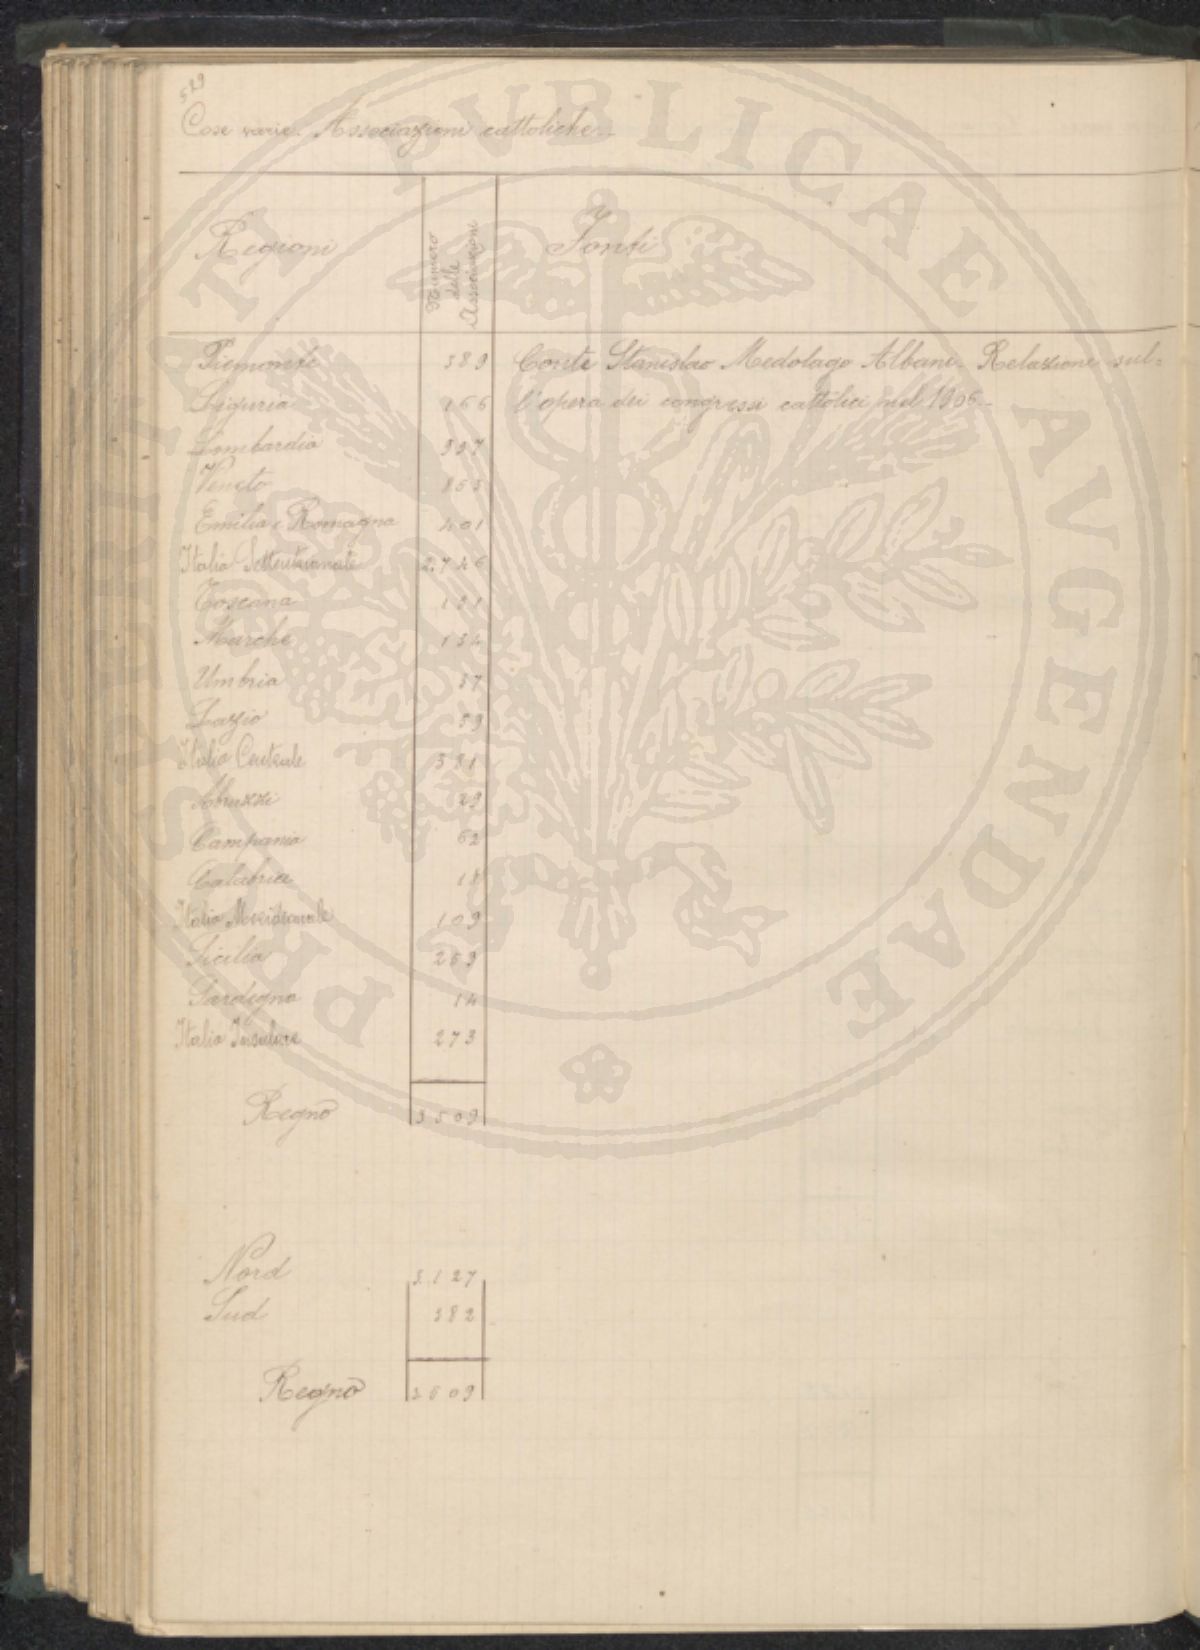 529
Cose varie. Associazioni cattoliche.
Regioni
Numero delle Associazioni
Fonti
Piemonte 389 Conte Stanislao Medolago Albani. Relazione sul=
Liguria 166 l'opera dei congressi cattolici nel 1906.
Lombardia 937
Veneto 853
Emilia e Romagna 401
Italia Settentrionale 2.746
Toscana 131
Marche 134
Umbria 57
Lazio 59
Italia Centrale 381
Abruzzi 29
Campania 62
Calabria 18
Italia Meridionale 109
Sicilia 259
Sardegna 14
Italia Insulare 273
Regno 3509
Nord 3.127
Sud 382
Regno 3509
PROSPERITATI PVBLICAE AVGENDAE